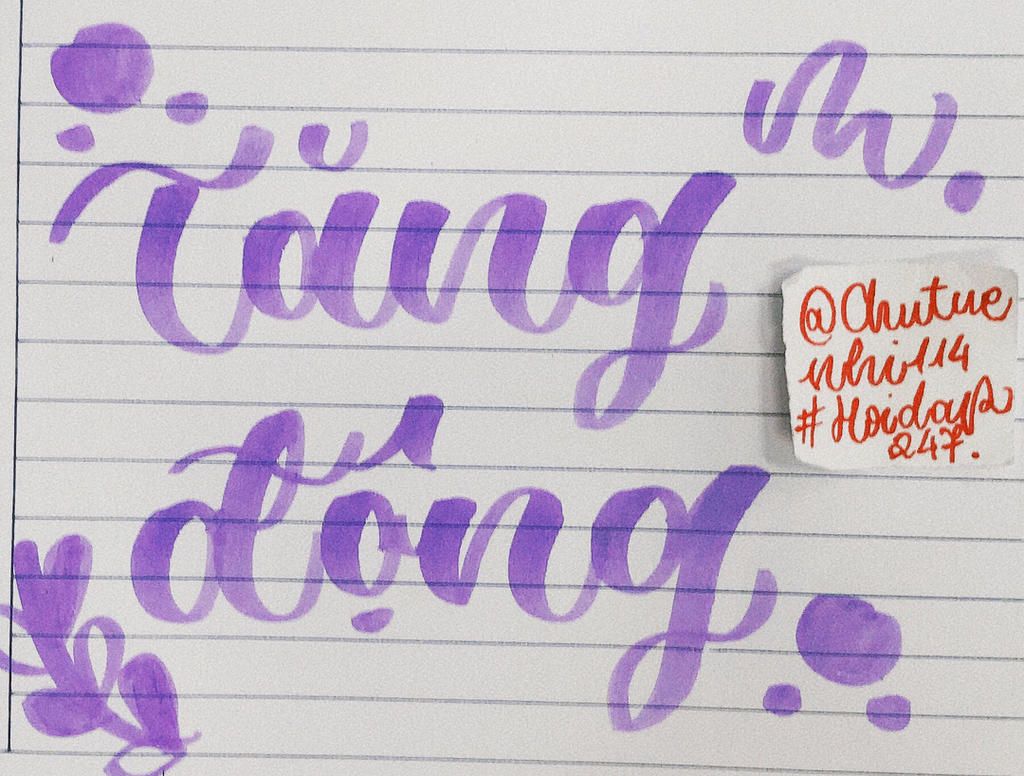 Tăng
động
@Chutue
nhi114
#Hoidap
247.